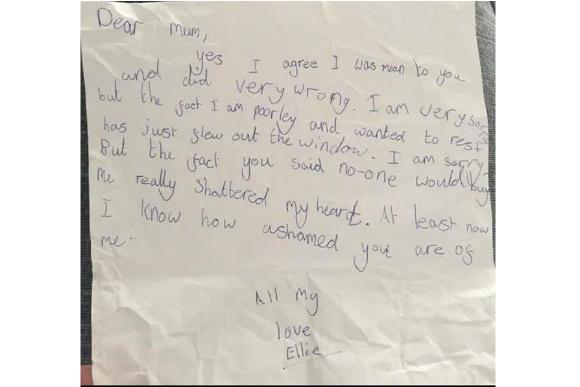 Dear Mum,
yes I agree I was mean to you
and did very wrong. I am very sorry
but the fact I am poorley and wanted to rest
has just flew out the window. I am sorry
But the fact you said no-one would buy
me really shattered my heart. At least now
I know how ashamed you are of
me.
All My
love
Ellie